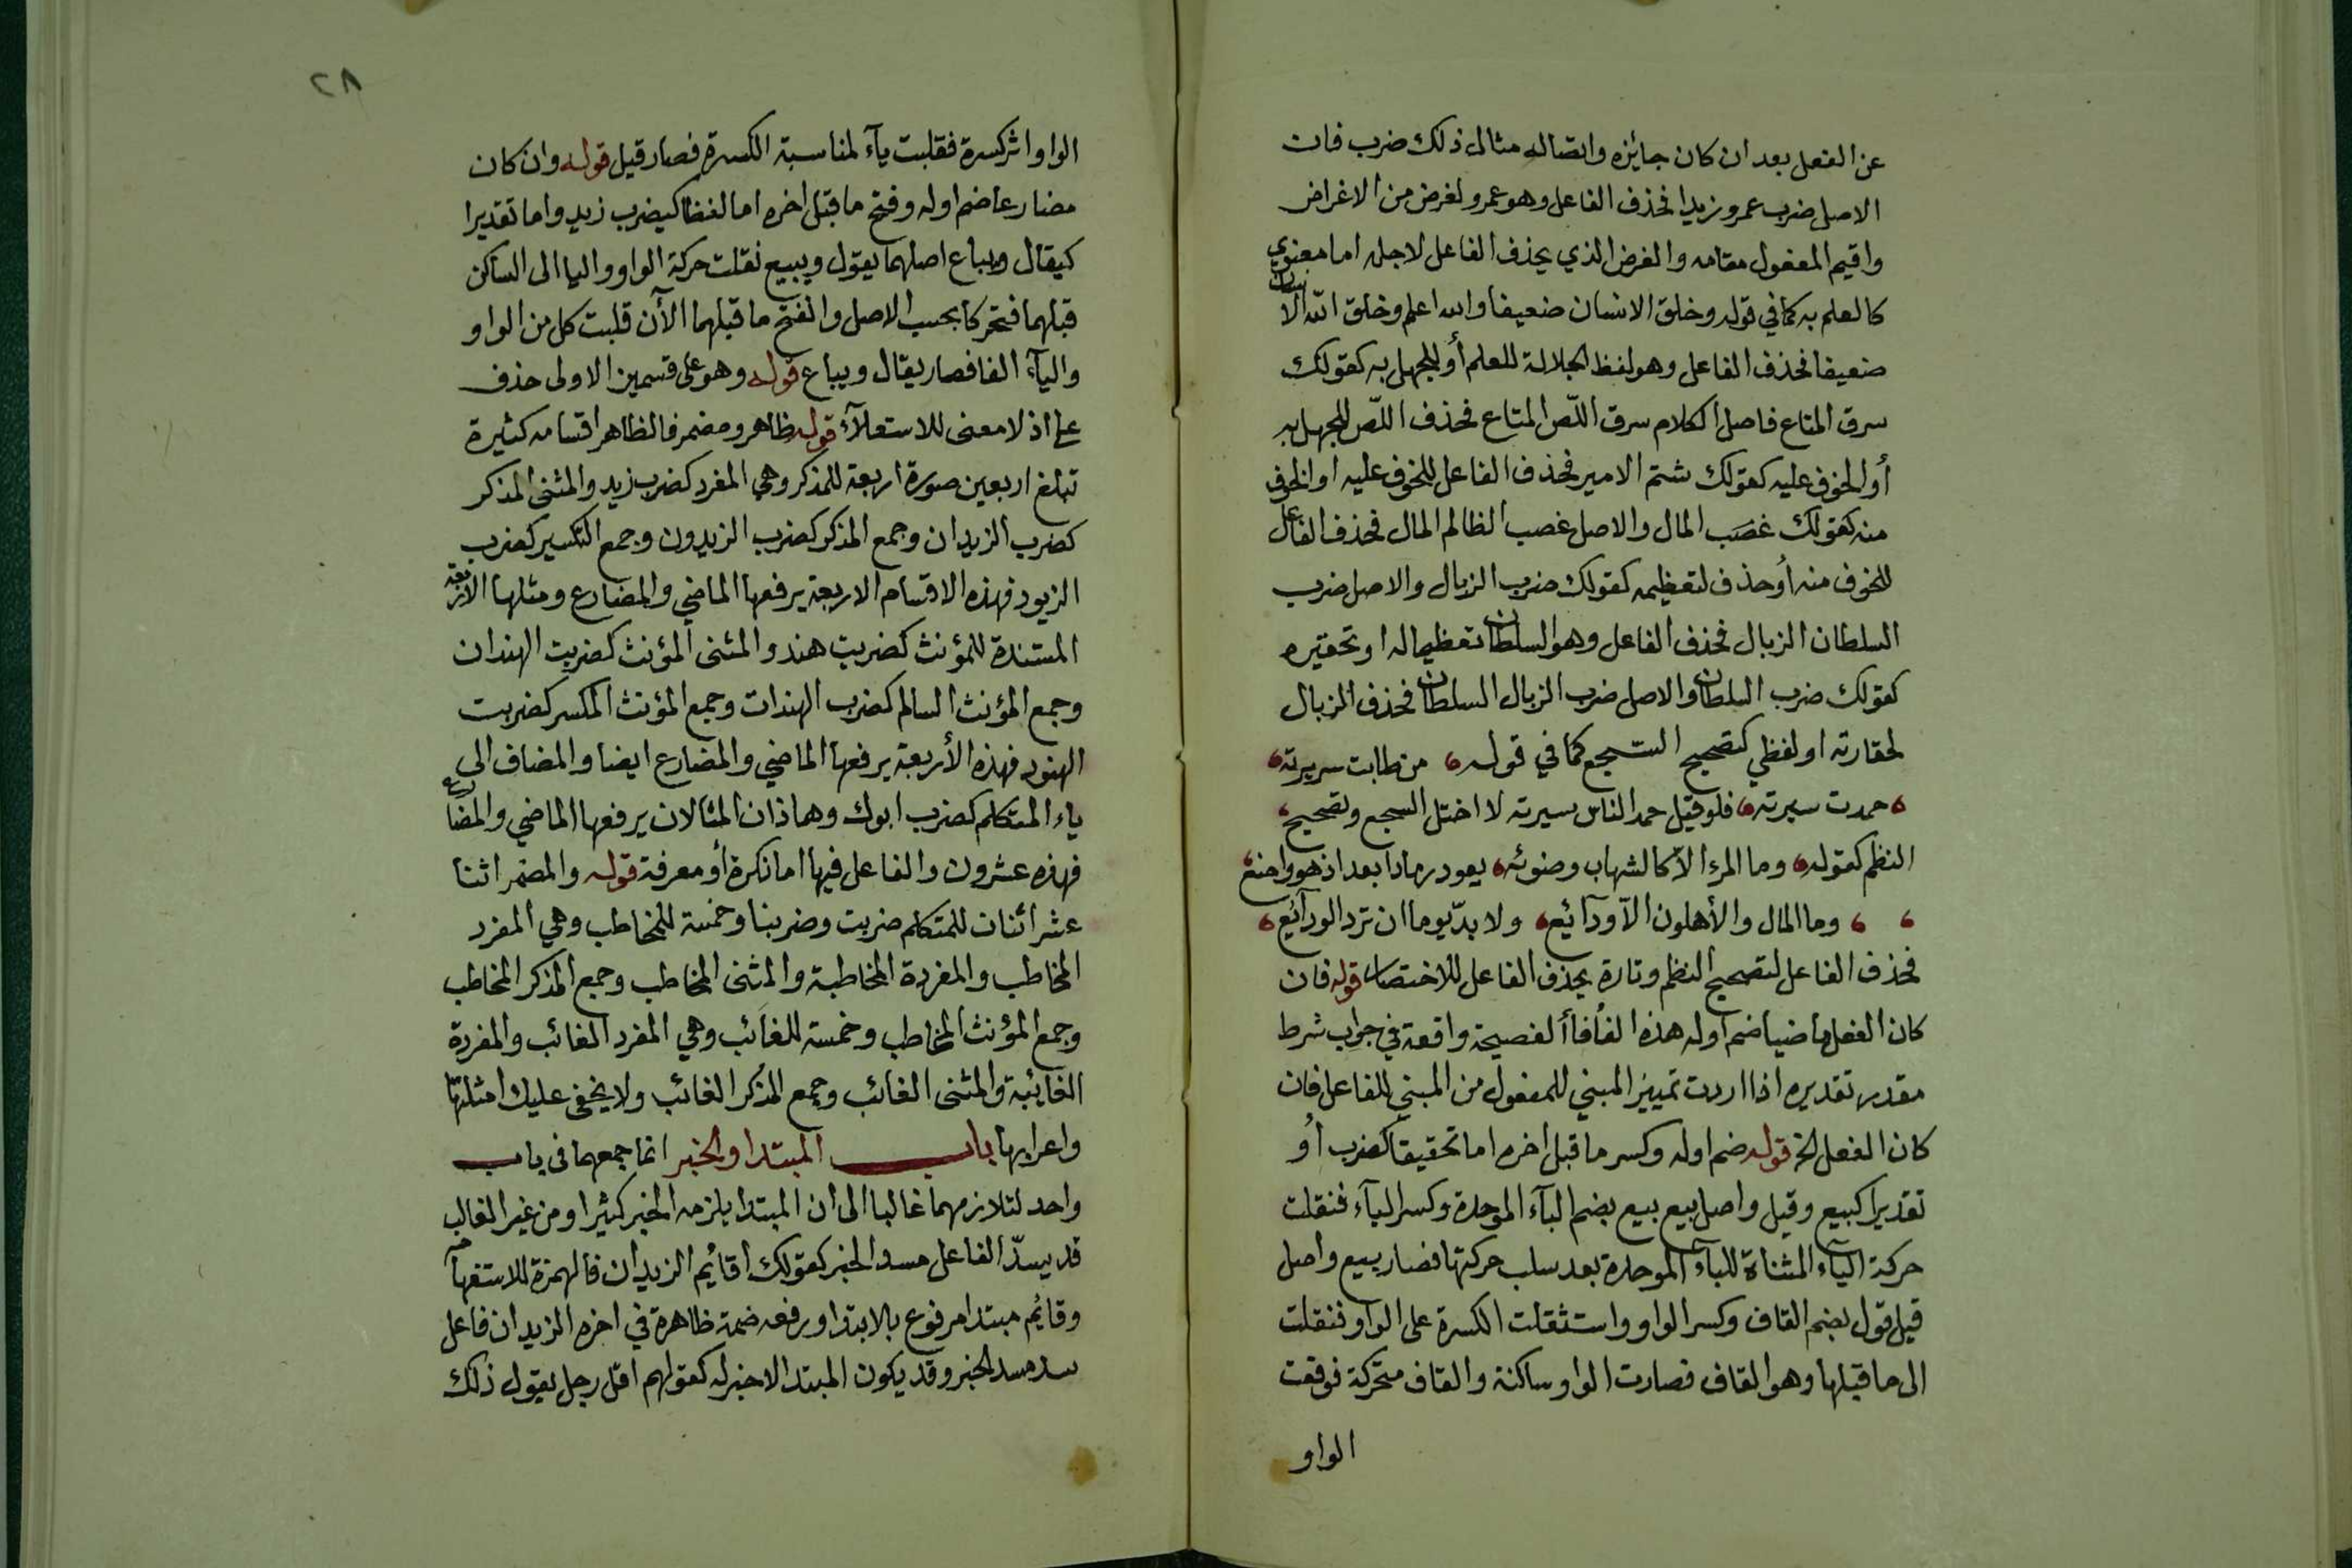 عن الفعل بعد ان كان جايزه واتصاله مثال ذلك ضرب فات
الاصل ضرب عمرو زيدا فحذف الفاعل وهو عمرو لغرض من الاغراض
واقيم المفعول مقامه والغرض الذي يحذف الفاعل لاجله اما معنوي
كالعلم به كما في قوله وخلق الانسان ضعيفا والله اعلم وخلق الله الانسان
ضعيفا فحذف الفاعل وهو لفظ الجلالة للعلم أو للجهل به كقولك
سرق المتاع فاصل الكلام سرق اللّص المتاع فحذف اللّص للجهل به
أو للخوف عليه كقولك شتم الامير فحذف الفاعل للخوف عليه او للخوف
منه كقولك غصب المال والاصل غصب الظالم المال فحذف الفاعل
للخوف منه أو حذف لتعظيمه كقولك ضرب الزبال والاصل ضرب
السلطان الزبال فحذف الفاعل وهو السلطان تعظيما له او تحقيره
كقولك ضرب السلطان والاصل ضرب الزبال السلطان فحذف الزبال
لحقارته او لفظي كتصحيح السجع كما في قوله من طابت سريرته
حمدت سيرته فلو قيل حمد الناس سيرته لا اختل السجع وتصحيح
النظم كقوله وما المرء الاّ كالشهاب وضوئه يعود رمادا بعد اذ هو
وما المال والأهلون الاّ ودآئع ولا بدّ يوما ان ترد الودآيع
فحذف الفاعل لتصحيح النظم وتارة يحذف الفاعل للاختصار قوله فان
كان الفعل ماضيا ضم اوله هذه الفأ فأ الفصيحة واقعة في جواب شرط
مقدر تقديره اذا اردت تمييز المبني للمفعول من المبني للفاعل فان
كان الفعل الخ قوله ضم اوله وكسر ما قبل اخره اما تحقيقا كضرب أو
تقديرا كبيع وقيل واصل بيع بيع بضم البآء الموحدة وكسر اليآء فنقلت
حركة اليآء المثناة للبآء الموحدة بعد سلب حركتها فصار بيع واصل
قيل قول بضم القاف وكسر الواو واستثقلت الكسرة على الواو فنقلت
الى ما قبلها وهو القاف فصارت الواو ساكنة والقاف متحركة فوقعت
الواو
٢٨
الواو اثر كسرة فقلبت يآء لمناسبة الكسرة فصار قيل قوله وان كان
مضارعا ضم اوله وفتح ما قبل اخره اما لفظا كيضرب زيد واما تقديرا
كيقال ويباع اصلهما يقول ويبيع نقلت حركة الواو واليا الى الساكن
قبلهما فتحركا بحسب الاصل والفتح ما قبلهما الآن قلبت كل من الواو
واليآء الفا فصار يقال ويباع قوله وهو على قسمين الاولى حذف
على اذ لا معنى للاستعلآء قوله ظاهر ومضمر فالظاهر اقسامه كثيرة
تبلغ اربعين صورة اربعة للمذكر وهي المفرد كضرب زيد والمثنى المذكر
كضرب الزيدان وجمع المذكر كضرب الزيدون وجمع التكسير كضرب
الزيود فهذه الاقسام الاربعة يرفعها الماضي والمضارع ومثلها الاربعة
المستندة للمؤنث كضربت هند والمثنى المؤنث كضربت الهندان
وجمع المؤنث السالم كضرب الهندات وجمع المؤنث المكسر كضربت
الهنود فهذه الأربعة يرفعها الماضي والمضارع ايضا والمضاف الى
ياء المتكلم كضرب ابوك وهماذان المثالان يرفعها الماضي والمضارع
فهذه عشرون والفاعل فيها اما نكرة أو معرفة قوله والمضمر اثنا
عشر اثنان للمتكلم ضربت وضربنا وخمسة للمخاطب وهي المفرد
المخاطب والمفردة المخاطبة والمثنى المخاطب وجمع المذكر المخاطب
وجمع المؤنث المخاطب وخمسة للغائب وهي المفرد الغائب والمفردة
الغايبة والمثنى الغائب وجمع المذكر الغائب ولا يخفى عليك امثلتها
واعرابها باب المبتدا والخبر انما جمعهما في باب
واحد لتلازمهما غالبا الى ان المبتدا يلزمه الخبر كثيرا ومن غير الغالب
قد يسدّ الفاعل مسد الخبر كقولك اقائم الزيدان فالهمزة للاستفهام
وقايم مبتدا مرفوع بالابتدا ورفعه ضمة ظاهرة في اخره الزيدان فاعل
سد مسد الخبر وقد يكون المبتدا لا خبر له كقولهم اقل رجل يقول ذلك